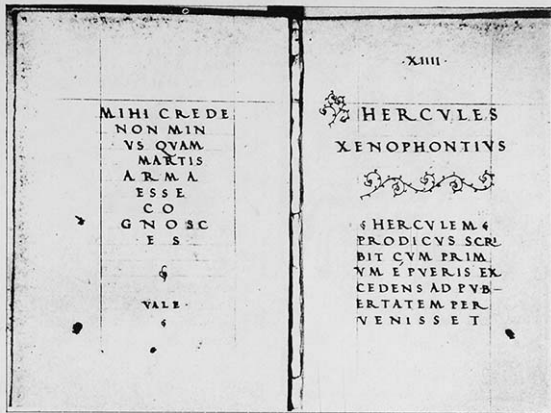 MIHI CREDE
NON MIN
VS QVAM
MARTIS
ARMA
ESSE
CO
GNOSC
ES
VALE
·XIIII·
HERCVLES
XENOPHONTIVS
HERCVLEM
PRODICVS SCRI
BIT CVM PRIM
VM E PVERIS EX
CEDENS AD PVB–
ERTATEM PER
VENISSET